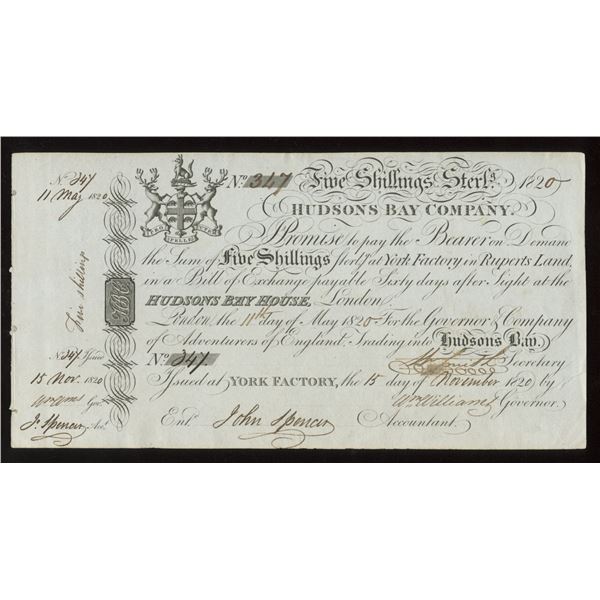 No. 347
11 May 1820
Five Shillings
No. 347 Issued
15 Nov. 1820
Wm Wms Govr.
Jn. Spencer Acct.
HBC
PRO PELLE CUTEM
No. 347 Five Shillings Sterlg. 1820
HUDSONS BAY COMPANY.
I Promise to pay the Bearer on Demand
the Sum of Five Shillings Sterlg. at York Factory in Ruperts Land,
in a Bill of Exchange payable Sixty days after Sight at the
HUDSONS BAY HOUSE, London.
London, the 11th day of May 1820 For the Governor & Company
of Adventurers of England Trading into Hudsons Bay.
No. 347 Secretary
Issued at YORK FACTORY, the 15 day of November 1820 by
Wm. Williams Governor.
Entd. John Spencer Accountant.